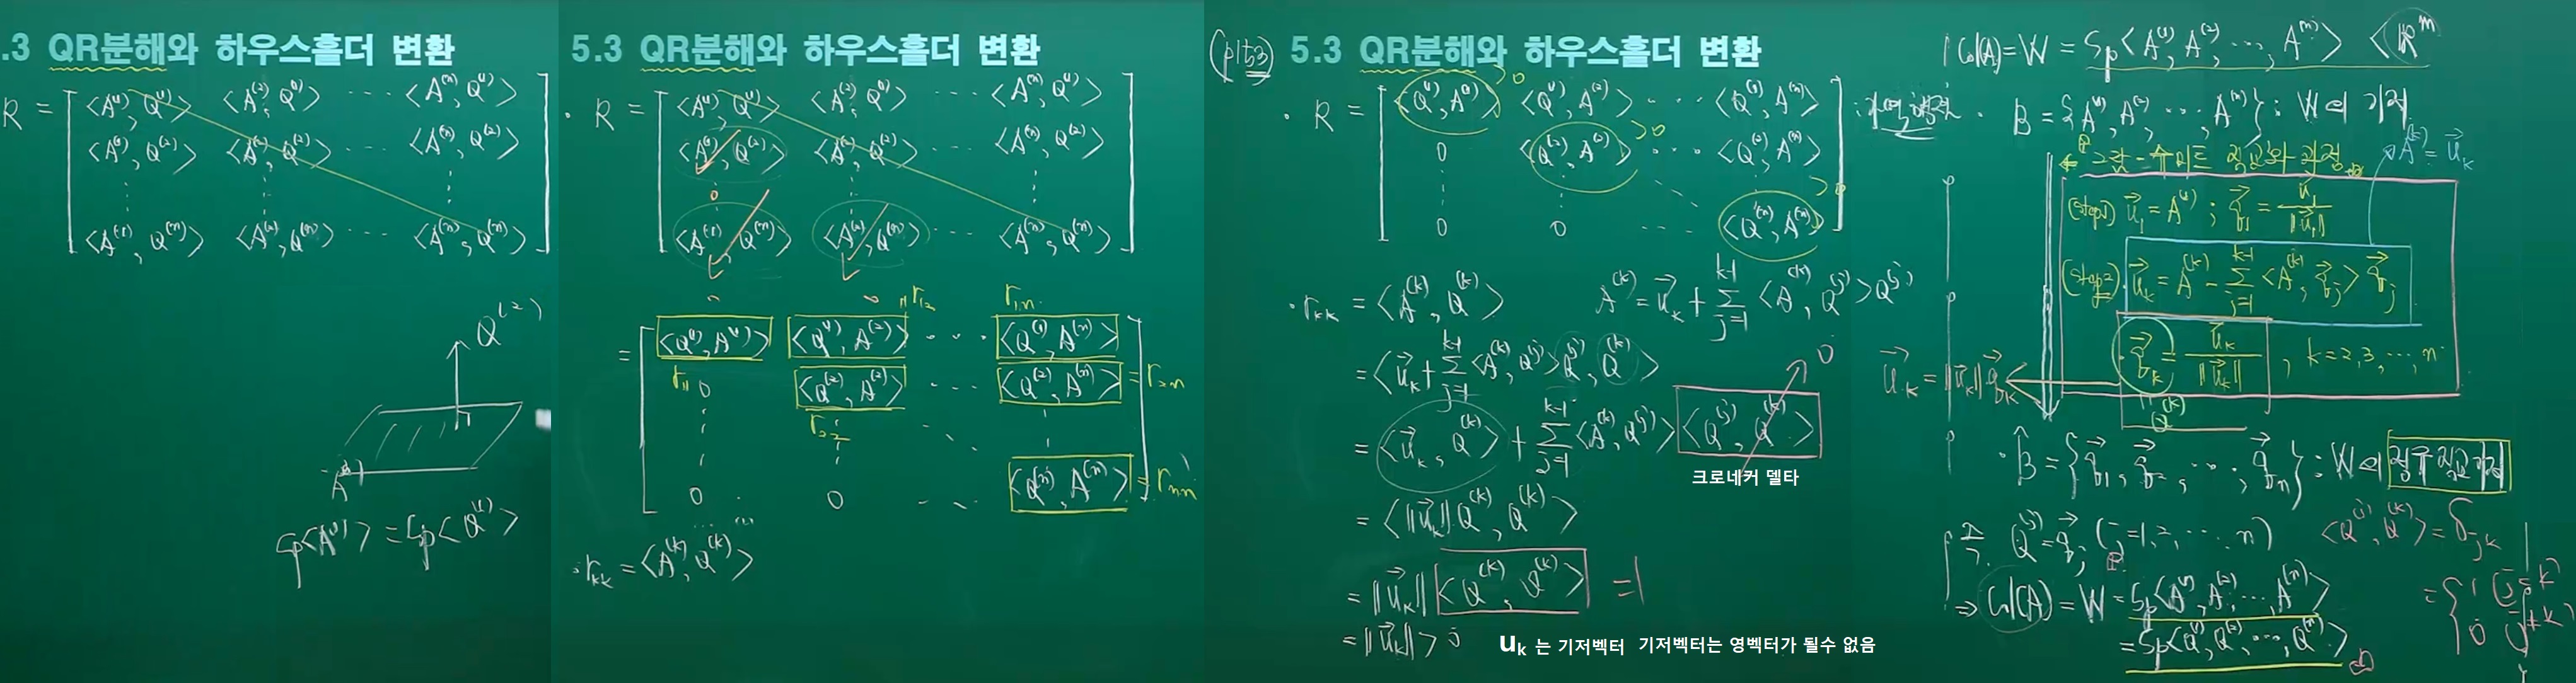 .3 QR분해와 하우스홀더 변환
R = [ <A⁽¹⁾, Q⁽¹⁾> <A⁽²⁾, Q⁽¹⁾> ··· <A⁽ⁿ⁾, Q⁽¹⁾>
<A⁽¹⁾, Q⁽²⁾> <A⁽²⁾, Q⁽²⁾> <A⁽ⁿ⁾, Q⁽²⁾>
⋮ ⋮ ⋮
<A⁽¹⁾, Q⁽ⁿ⁾> <A⁽²⁾, Q⁽ⁿ⁾> ··· <A⁽ⁿ⁾, Q⁽ⁿ⁾> ]
Q⁽²⁾
A⁽¹⁾
Sp<A⁽¹⁾> = Sp<Q⁽¹⁾>
5.3 QR분해와 하우스홀더 변환
· R = [ <A⁽¹⁾, Q⁽¹⁾> <A⁽²⁾, Q⁽¹⁾> ··· <A⁽ⁿ⁾, Q⁽¹⁾>
<A⁽¹⁾, Q⁽²⁾> <A⁽²⁾, Q⁽²⁾> <A⁽ⁿ⁾, Q⁽²⁾>
0
<A⁽¹⁾, Q⁽ⁿ⁾> <A⁽²⁾, Q⁽ⁿ⁾> ··· <A⁽ⁿ⁾, Q⁽ⁿ⁾> ]
0 0 r₁₂ r₁ₙ
= [ <Q⁽¹⁾, A⁽¹⁾> <Q⁽¹⁾, A⁽²⁾> ··· <Q⁽¹⁾, A⁽ⁿ⁾>
r₁₁ 0 <Q⁽²⁾, A⁽²⁾> ··· <Q⁽²⁾, A⁽ⁿ⁾> = r₂ₙ
r₂₂
0 0 ··· <Q⁽ⁿ⁾, A⁽ⁿ⁾> = rₙₙ ]
· rₖₖ = <A⁽ᵏ⁾, Q⁽ᵏ⁾>
(p153) 5.3 QR분해와 하우스홀더 변환
· R = [ <Q⁽¹⁾, A⁽¹⁾> >0 <Q⁽¹⁾, A⁽²⁾> ··· <Q⁽¹⁾, A⁽ⁿ⁾>
0 <Q⁽²⁾, A⁽²⁾> >0 ··· <Q⁽²⁾, A⁽ⁿ⁾>
0 0 ··· <Q⁽ⁿ⁾, A⁽ⁿ⁾> >0 ]
· rₖₖ = <A⁽ᵏ⁾, Q⁽ᵏ⁾> A⁽ᵏ⁾ = u⃗ₖ + Σ_{j=1}^{k-1} <A⁽ᵏ⁾, Q⁽ʲ⁾> Q⁽ʲ⁾
= <u⃗ₖ + Σ_{j=1}^{k-1} <A⁽ᵏ⁾, Q⁽ʲ⁾> Q⁽ʲ⁾, Q⁽ᵏ⁾>
= <u⃗ₖ, Q⁽ᵏ⁾> + Σ_{j=1}^{k-1} <A⁽ᵏ⁾, Q⁽ʲ⁾> <Q⁽ʲ⁾, Q⁽ᵏ⁾> 0
크로네커 델타
= <||u⃗ₖ|| Q⁽ᵏ⁾, Q⁽ᵏ⁾>
= ||u⃗ₖ|| <Q⁽ᵏ⁾, Q⁽ᵏ⁾> = 1
= ||u⃗ₖ|| > 0
uₖ 는 기저벡터 기저벡터는 영벡터가 될수 없음
Col(A) = W = Sp<A⁽¹⁾, A⁽²⁾, ···, A⁽ⁿ⁾> < ℝᵐ
· B = {A⁽¹⁾, A⁽²⁾, ···, A⁽ⁿ⁾} : W의 기저
그람-슈미트 직교화 과정
A⁽ᵏ⁾ = u⃗ₖ
(step1) u⃗₁ = A⁽¹⁾ ; q⃗₁ = u⃗₁ / ||u⃗₁||
(step2) u⃗ₖ = A⁽ᵏ⁾ - Σ_{j=1}^{k-1} <A⁽ᵏ⁾, q⃗ⱼ> q⃗ⱼ
q⃗ₖ = u⃗ₖ / ||u⃗ₖ|| , k = 2, 3, ···, n
u⃗ₖ = ||u⃗ₖ|| q⃗ₖ
Q⁽ᵏ⁾
· B̂ = {q⃗₁, q⃗₂, ···, q⃗ₙ} : W의 정규직교기저
Q⁽ʲ⁾ = q⃗ⱼ (j=1, 2, ···, n) <Q⁽ʲ⁾, Q⁽ᵏ⁾> = δⱼₖ
⇒ Col(A) = W = Sp<A⁽¹⁾, A⁽²⁾, ···, A⁽ⁿ⁾>
= { 1 (j=k)
0 j≠k
= Sp<Q⁽¹⁾, Q⁽²⁾, ···, Q⁽ⁿ⁾>